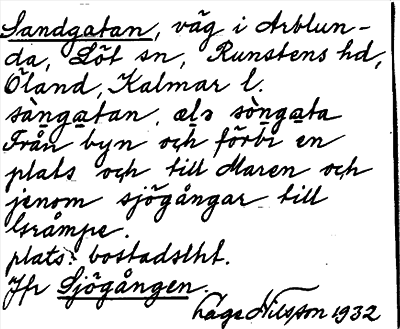 Sandgatan, väg i Arblun-
da, Löt sn, Runstens hd,
Öland, Kalmar l.
sàngatan, əls sòngata
Från byn och förbi en
plats och till Maren och
jenom sjögångar till
Gråmpe.
plats: bostadslht.
Jfr Sjögången.
Låge Nilsson 1932